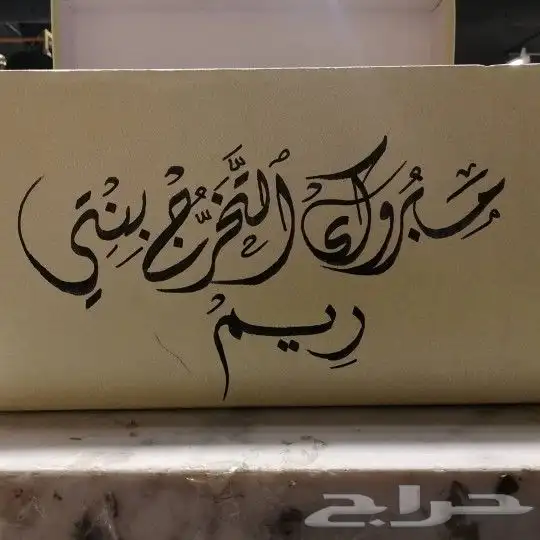 مبروك التخرج بنتي
ريم
حراج